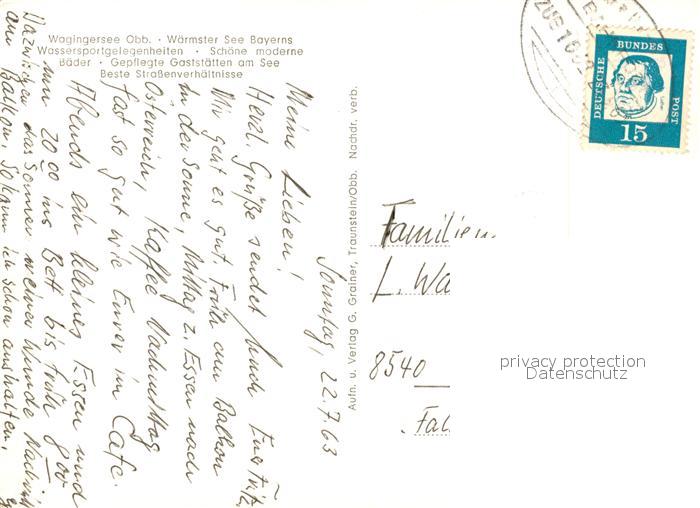 Wagingersee Obb. · Wärmster See Bayerns
Wassersportgelegenheiten · Schöne moderne
Bäder · Gepflegte Gaststätten am See
Beste Straßenverhältnisse
Sonntag, 22.7.63
Meine Lieben!
Herzl. Grüße sendet Euch
Mir geht es gut. Früh am Balkon
in der Sonne, Mittag z. Essen nach
Österreich, Kaffee Nachmittag
fast so gut wie Eurer im Cafe.
Abends ein kleines Essen und
um 20 00 ins Bett bis früh 8 00
Dazwischen das Sonnen meiner Wunde
am Balkon. So kann ich schon aushalten.
Aufn. u. Verlag G. Grainer, Traunstein/Obb. Nachdr. verb.
DEUTSCHE BUNDES POST
15
Familie
L. Wa
8540
privacy protection
Datenschutz